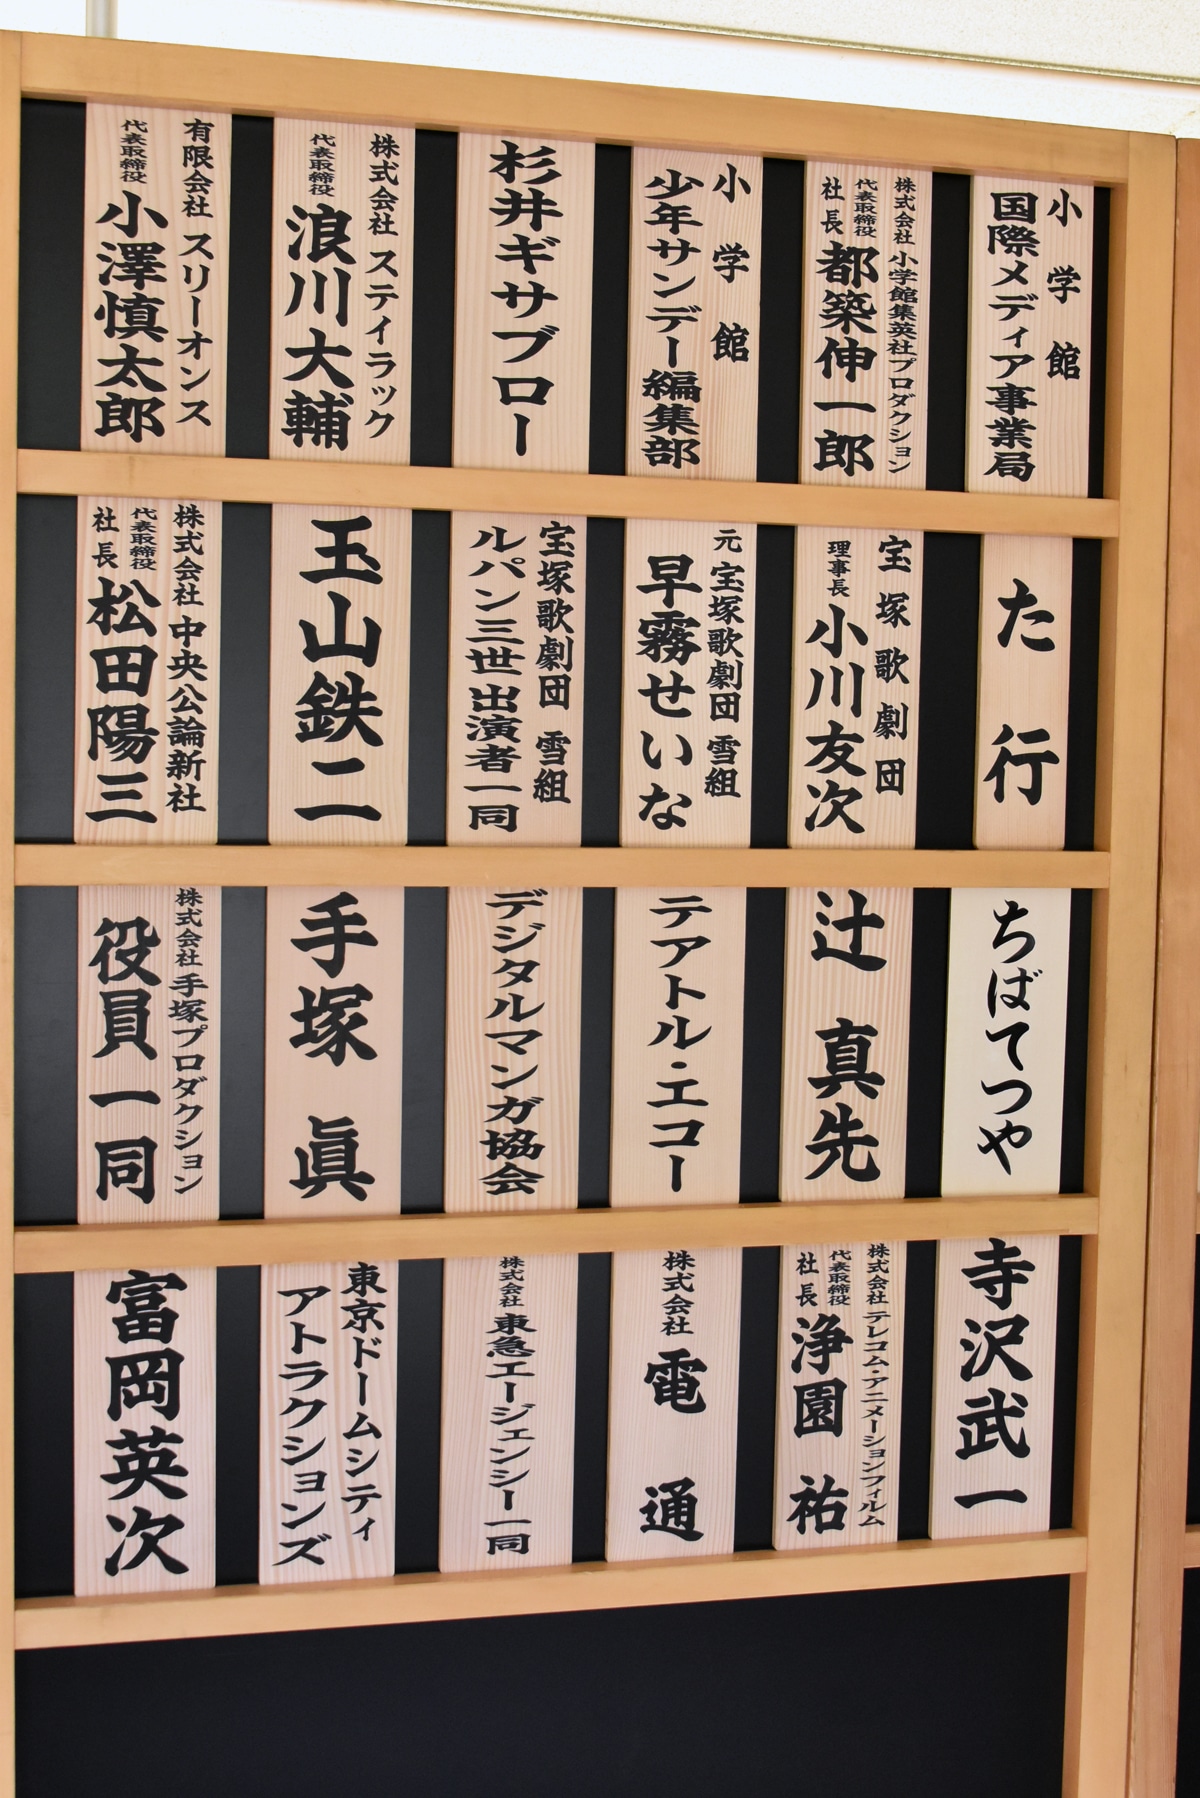 小学館
国際メディア事業局
株式会社 小学館集英社プロダクション
代表取締役
社長
都築伸一郎
小学館
少年サンデー編集部
杉井ギサブロー
株式会社 スティラック
代表取締役
浪川大輔
有限会社 スリーオンス
代表取締役
小澤慎太郎
た行
宝塚歌劇団
理事長
小川友次
元 宝塚歌劇団 雪組
早霧せいな
宝塚歌劇団 雪組
ルパン三世 出演者一同
玉山鉄二
株式会社 中央公論新社
代表取締役
社長
松田陽三
ちばてつや
辻 真先
テアトル・エコー
デジタルマンガ協会
手塚 眞
株式会社 手塚プロダクション
役員一同
寺沢武一
株式会社 テレコム・アニメーションフィルム
代表取締役
社長
浄園 祐
株式会社 電通
株式会社 東急エージェンシー一同
東京ドームシティ
アトラクションズ
富岡英次